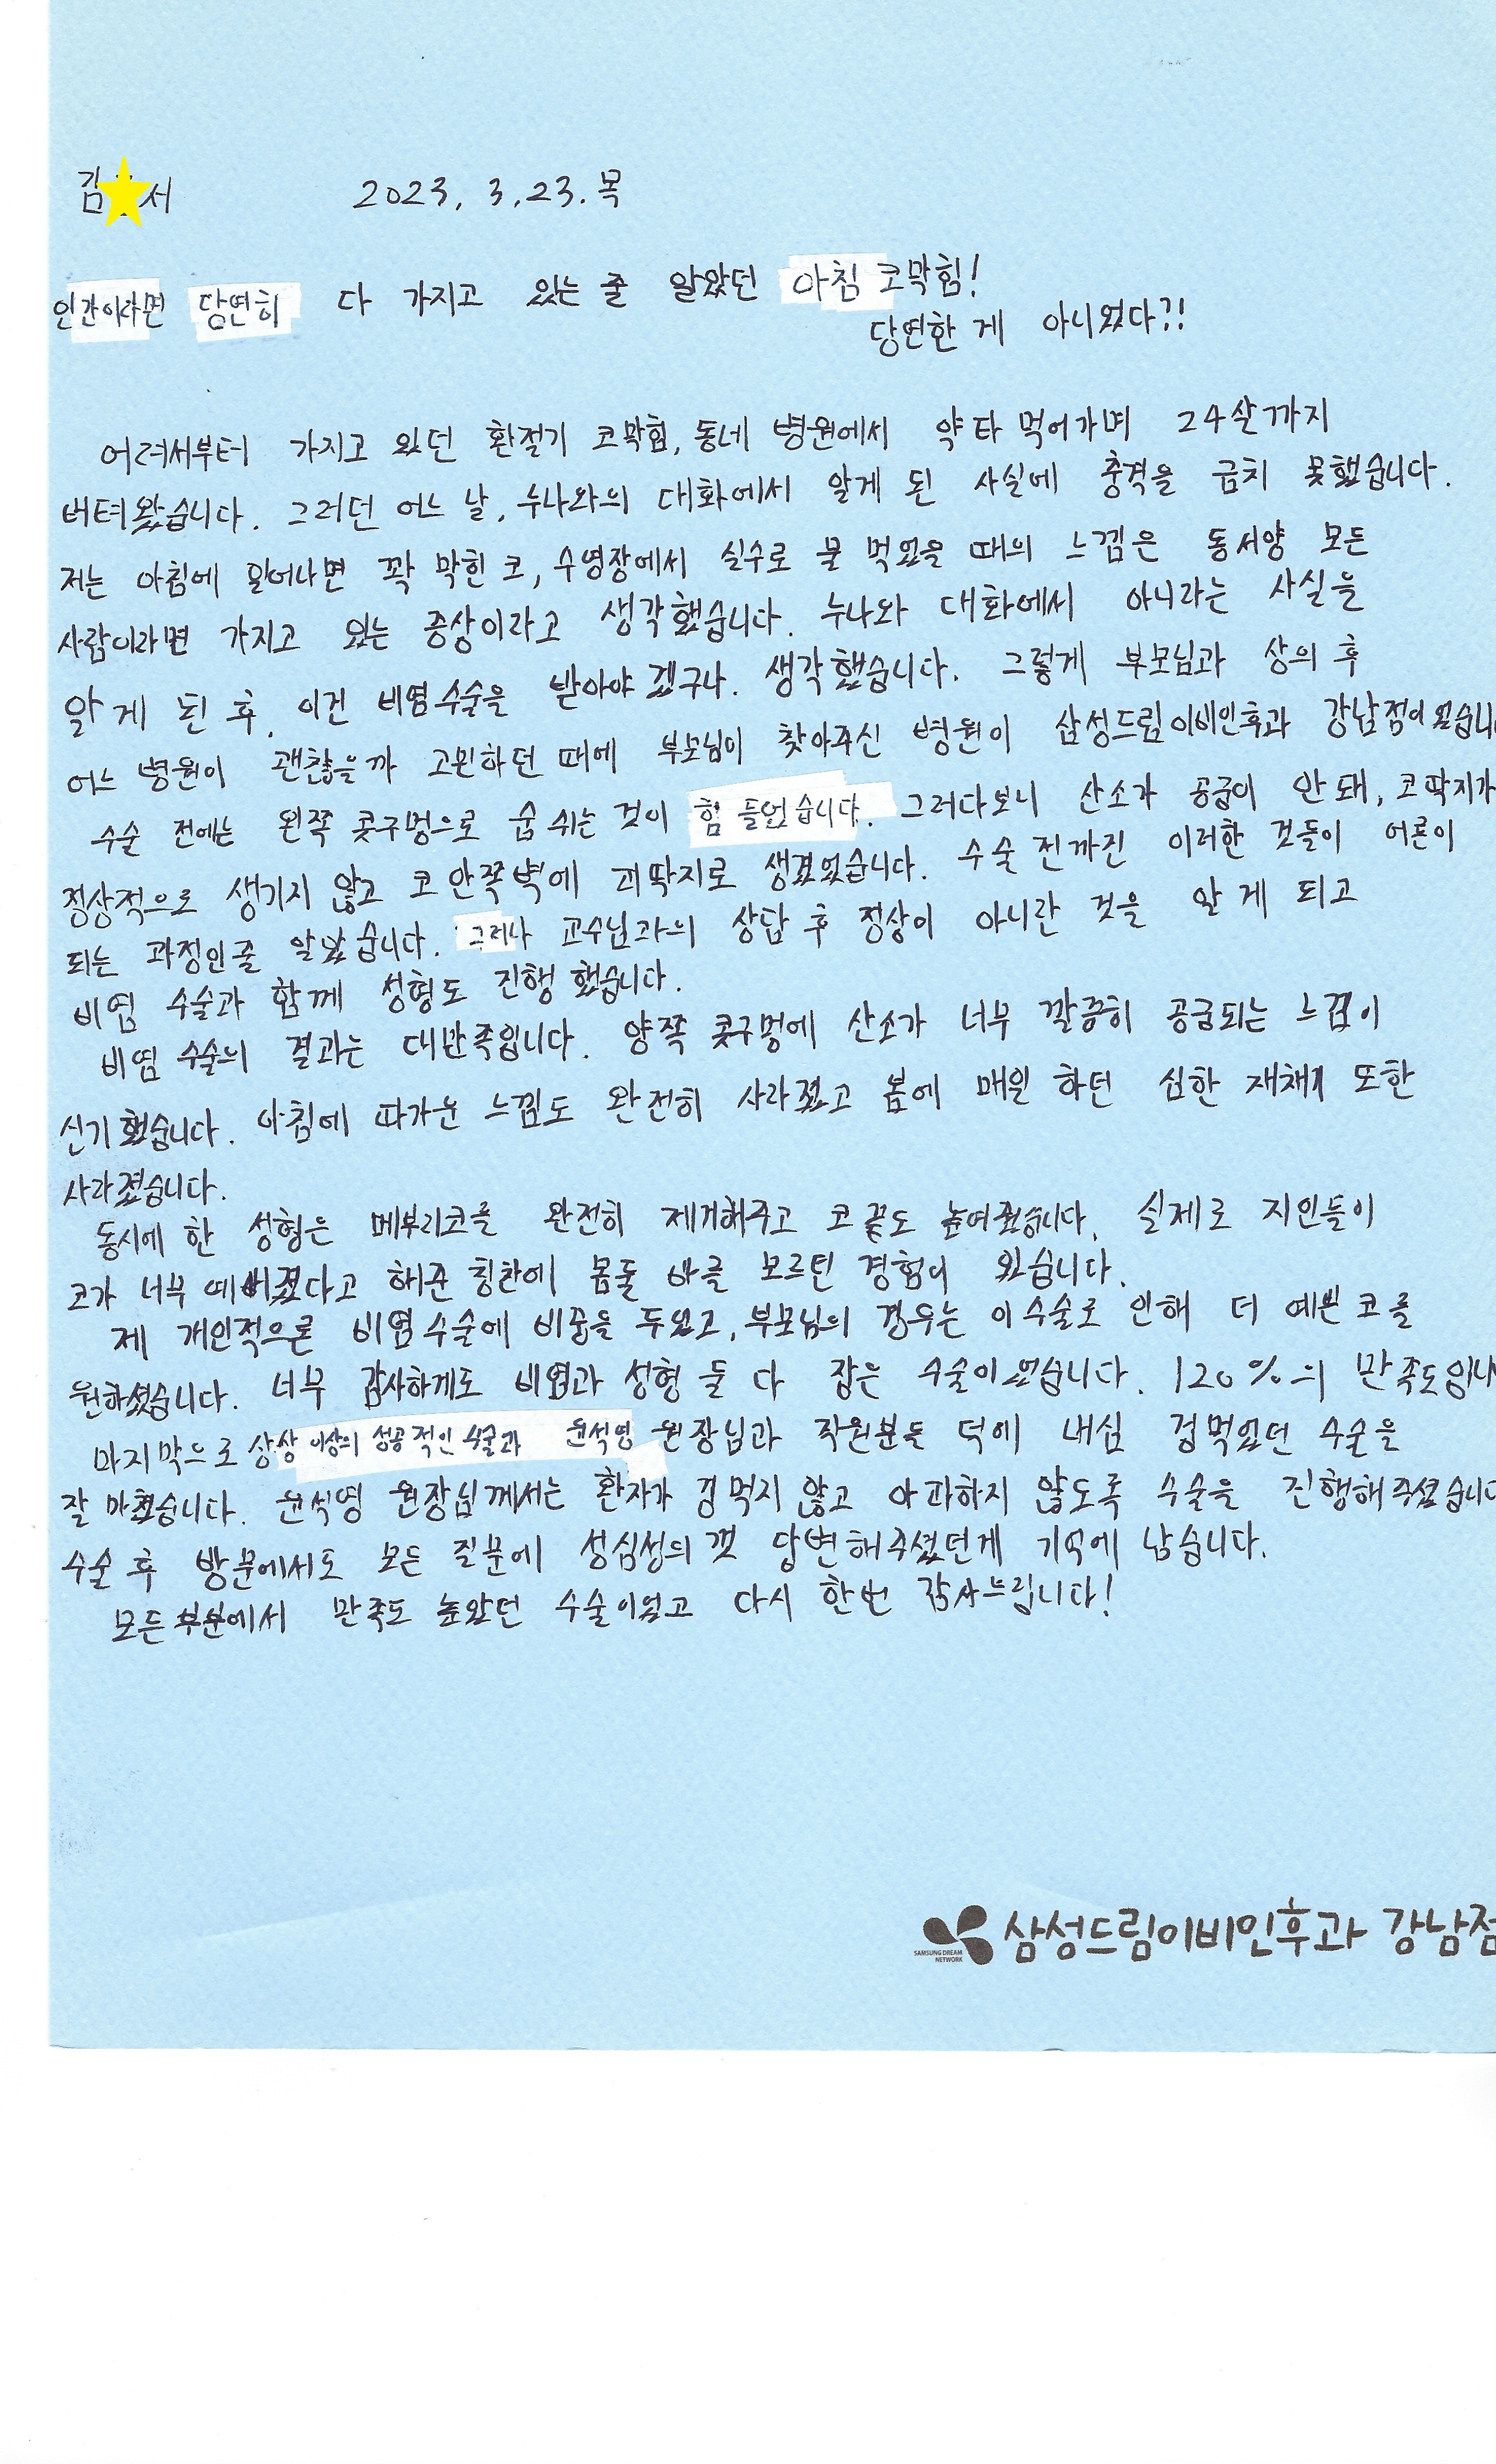 김 서 2023. 3. 23. 목
인간이라면 당연히 다 가지고 있는 줄 알았던 아침 코막힘!
당연한 게 아니었다?!
어려서부터 가지고 있던 환절기 코막힘, 동네 병원에서 약 타 먹어가며 24살까지
버텨왔습니다. 그러던 어느 날, 누나와의 대화에서 알게 된 사실에 충격을 금치 못했습니다.
저는 아침에 일어나면 꽉 막힌 코, 수영장에서 실수로 물 먹었을 때의 느낌은 동서양 모든
사람이라면 가지고 있는 증상이라고 생각했습니다. 누나와 대화에서 아니라는 사실을
알게 된 후, 이건 비염수술을 받아야겠구나. 생각했습니다. 그렇게 부모님과 상의 후
어느 병원이 괜찮을까 고민하던 때에 부모님이 찾아주신 병원이 삼성드림이비인후과 강남점이었습니
수술 전에는 왼쪽 콧구멍으로 숨 쉬는 것이 힘들었습니다. 그러다보니 산소가 공급이 안돼, 코딱지가
정상적으로 생기지 않고 코 안쪽벽에 피딱지로 생겼었습니다. 수술 전까진 이러한 것들이 어른이
되는 과정인줄 알았습니다. 그러나 교수님과의 상담 후 정상이 아니란 것을 알게 되고
비염 수술과 함께 성형도 진행했습니다.
비염 수술의 결과는 대만족입니다. 양쪽 콧구멍에 산소가 너무 깔끔히 공급되는 느낌이
신기했습니다. 아침에 따가운 느낌도 완전히 사라졌고 봄에 매일 하던 심한 재채기 또한
사라졌습니다.
동시에 한 성형은 메부리코를 완전히 제거해주고 코 끝도 높여줬습니다. 실제로 지인들이
코가 너무 예뻐졌다고 해준 칭찬에 몸둘 바를 모르던 경험이 있습니다.
제 개인적으론 비염수술에 비중을 두었고, 부모님의 경우는 이 수술로 인해 더 예쁜 코를
원하셨습니다. 너무 감사하게도 비염과 성형 둘 다 잡은 수술이었습니다. 120%의 만족도입니
마지막으로 상상 이상의 성공적인 수술과 윤석영 원장님과 직원분들 덕에 내심 겁먹었던 수술을
잘 마쳤습니다. 윤석영 원장님께서는 환자가 겁먹지 않고 아파하지 않도록 수술을 진행해주셨습니다
수술 후 방문에서도 모든 질문에 성심성의껏 답변해주셨던게 기억에 남습니다.
모든 부분에서 만족도 높았던 수술이었고 다시 한번 감사드립니다!
SAMSUNG DREAM NETWORK 삼성드림이비인후과 강남점